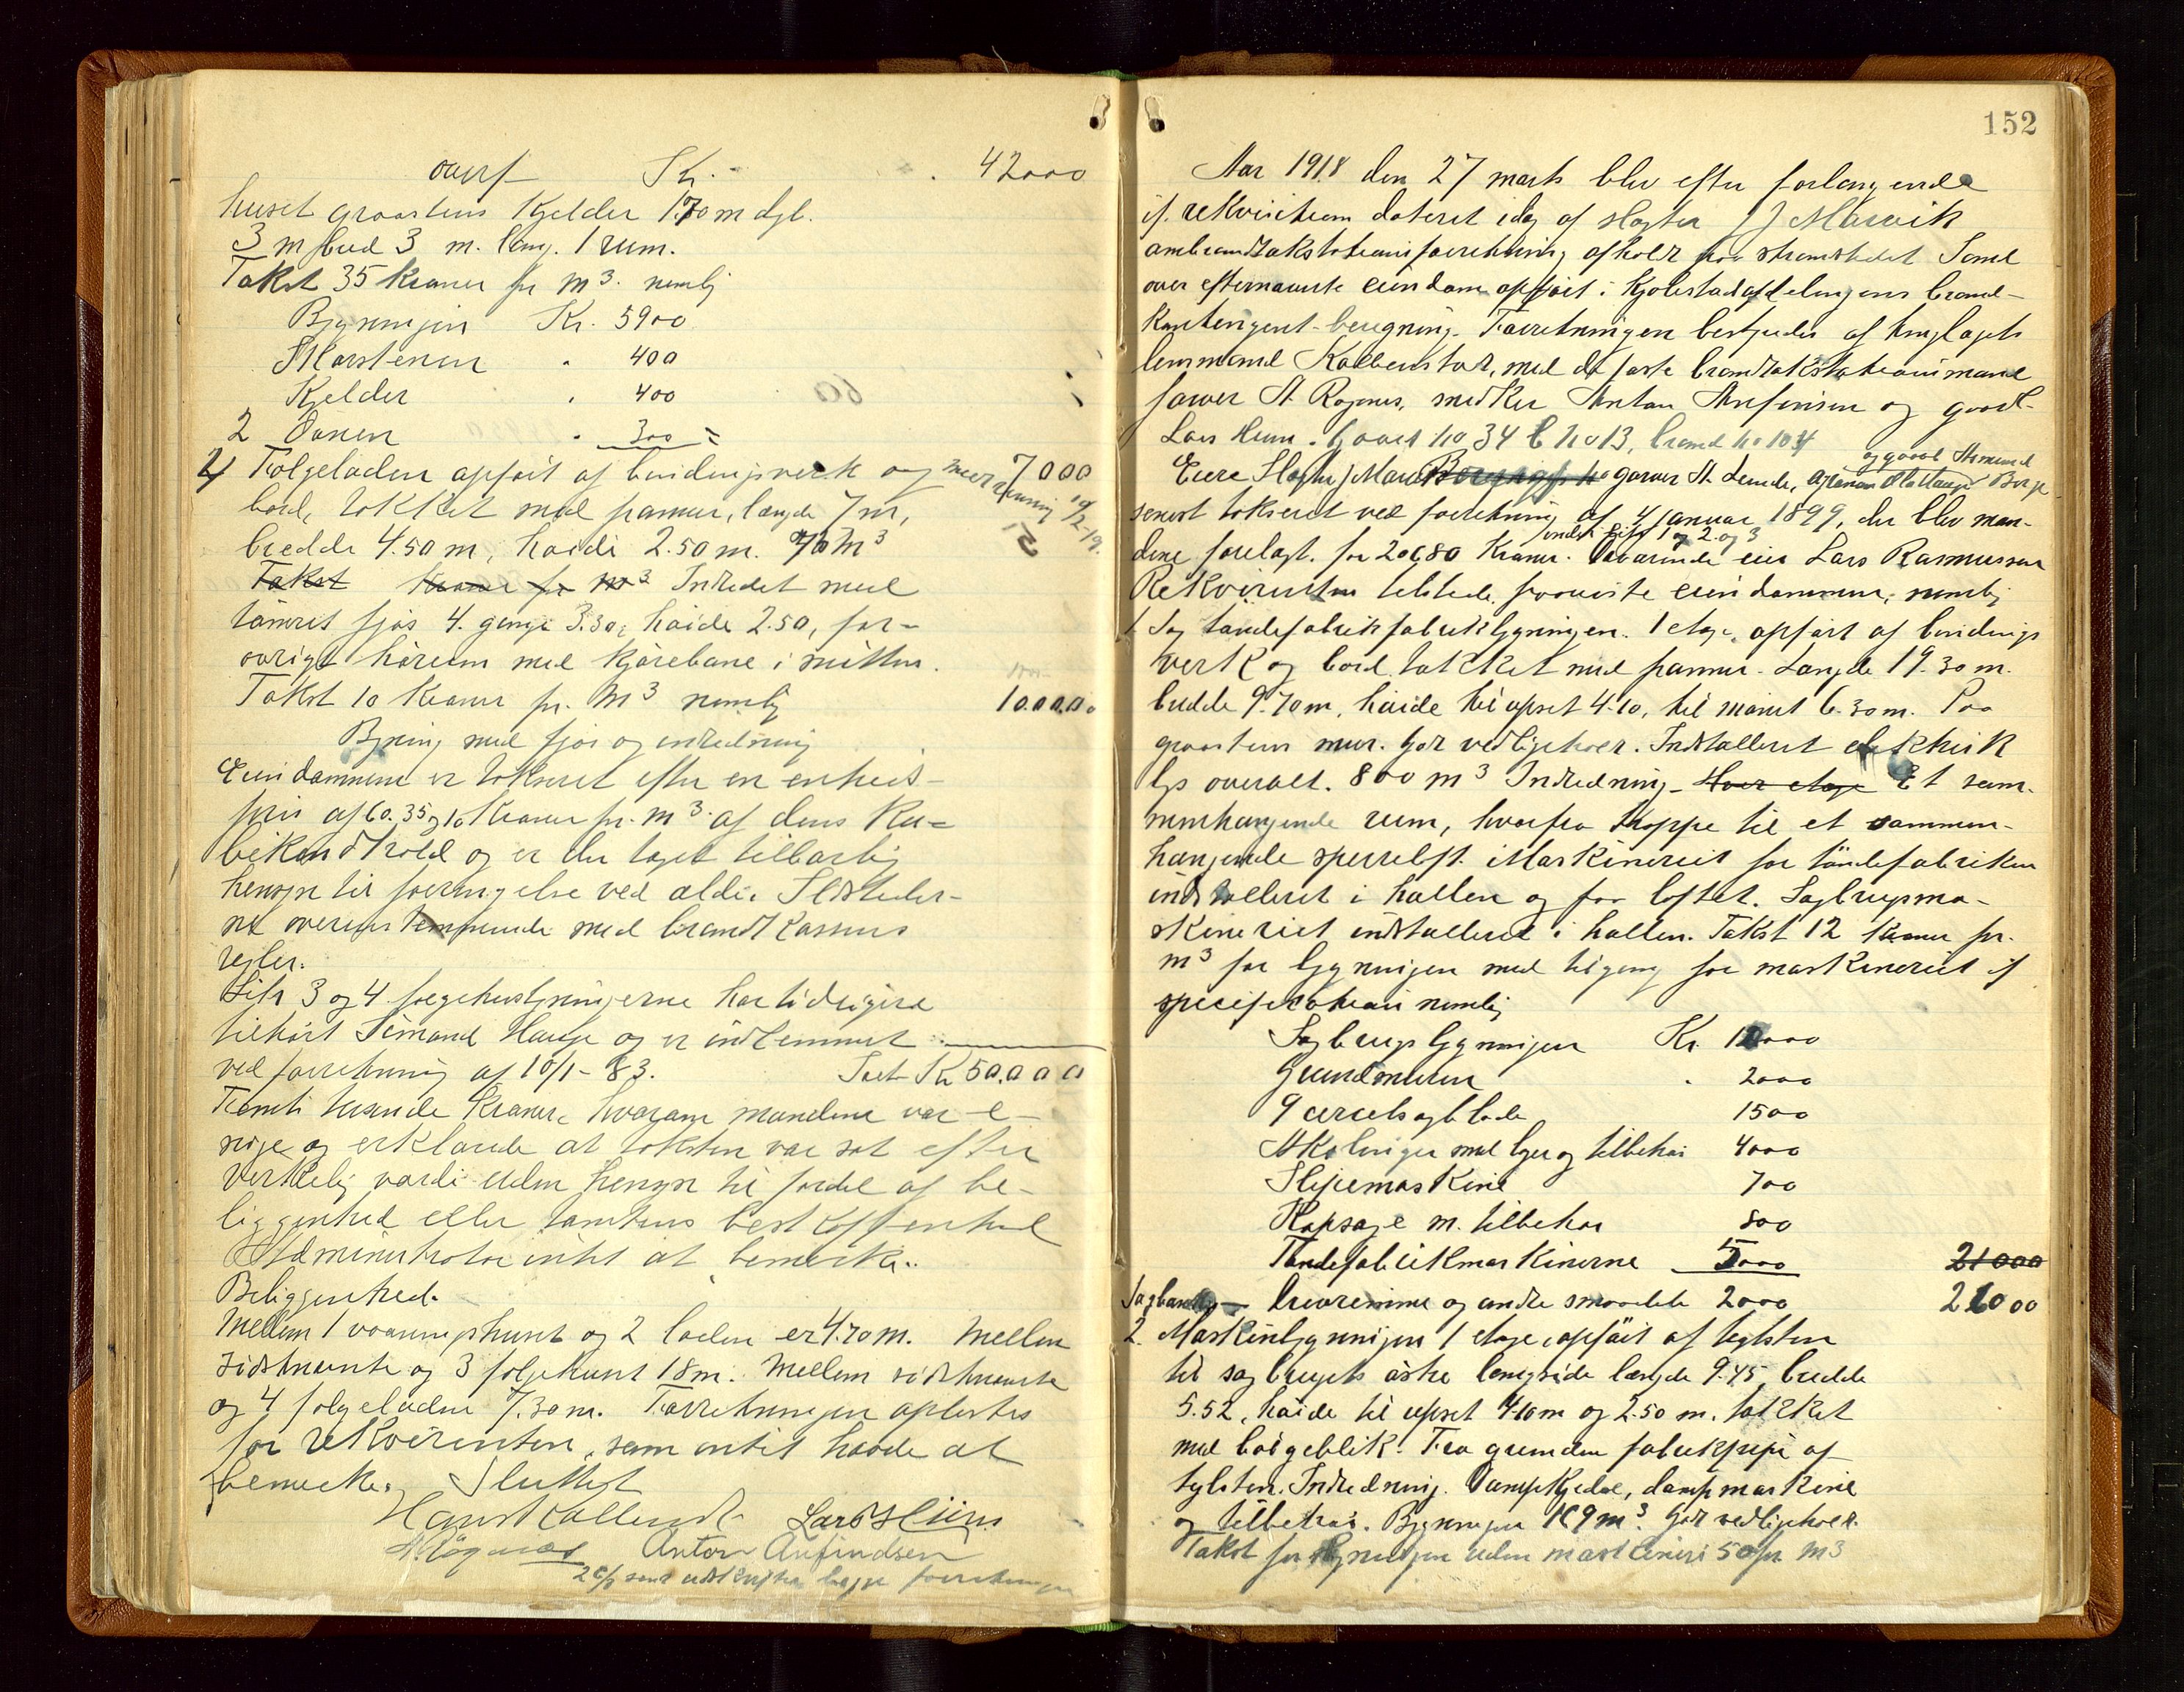 overf Kr. 42000
huset graastens Kjelder 1.70 m dyb.
3 m bred 3 m. lang. 1 rum.
Takst 35 kroner pr m³. nemlig
Bygningen Kr. 5900
Skorstenen 400
Kjelder 400
2 Ovnen 300 =
4 Følgeladen opført af bindingsverk og 7000
bord, tækket med panner, længde 7 m,
bredde 4.50 m, høide 2.50 m. 70 m³
Takst Kroner pr m³ Indredet med
tømret fjøs 4. gange 3.30, høide 2.50, for-
øvrigt hørum med kjørebane i midten.
Takst 10 kroner pr. m³ nemlig 1000.00
Bygning med fjøs og indredning
Eiendommene er takseret efter en enheds-
pris af 60. 35 og 10 Kroner pr. m³ af dens Ku-
bikindhold og er der taget tilbørlig
hensyn til foringelse ved ælde. Ildsteder-
ne overensstemmende med brandkassens
regler.
Litr 3 og 4 følgehusbygningerne har tidligere
tilhørt Simand Hauge og er indlemmet
ved forretning af 10/1-83. Sum Kr 50.000
Femti tusende Kroner, hvorom mændene var e-
nige og erklærede at taksten var sat efter
verkelig værdi uden hensyn til fordel af be-
liggenhed eller tomtens beskaffenhed
Administrator intet at bemerke.
Beliggenhed.
Mellem 1 vaaningshuset og 2 laden er 4.70 m. Mellem
sidstnævnte og 3 følgehuset 18 m. Mellem sidstnævnte
og 4 følgeladen 7.30 m. Forretningen oplæstes
for rekvirenten, som intet havde at
bemerke. Sluttet
Hans Kallenst Lars Hiim
A Røgenes Anton Anfindsen
152
Aar 1918 den 27 marts blev efter forlangende
if. rekvisition dateret idag af slagter J J Marvik
ombrandtakstationsforretning afholdt paa strandstedet Sand
over efternævnte eiendom opført i Kjølestadafdelingens brand-
kontingent-beregning. Forretningen bestyredes af tinglagets
lensmand Kallenstad, med de faste brandtakstationsmænd
farver A Røgenes, snedker Anton Anfinsen og gaardb.
Lars Hiim. Gaards no 34 b no 13, brand no 104
og gaardb Asmund
Eiere Slagter J Marvik garver A. Lunde,
senest takseret ved forretning af 4 januar 1899, der blev mæn-
under litr 1 og 2. og 3
dene forelagt. for 20680 Kroner. Daværende eier Lars Rasmussen
Rekvirenten tilstede paaviste eiendommen, nemlig
1 Sag tøndefabrikfabrikbygningen. 1 etage, opført af bindings
verk og bord tækket med panner. Længde 19.30 m.
bredde 9.70 m, høide til opset 4.10, til mønet 6.30 m. Paa
graastens mur. Godt vedligeholdt. Installeret elektrisk
lys overalt. 800 m³ Indredning. Hver etage Et sam-
menhængende rum, hvorfra trappe til et sammen-
hængende sperreloft. Maskineriet for tøndefabriken
installeret i hallen og paa loftet. Sagbrugsma-
skineriet installeret i hallen. Takst 12 kroner pr.
m³ for bygningen med tilgang for maskineriet if
specifikation nemlig
Sagbrugsbygningen Kr. 10000
Grundmuren 2000
9 circelsagblade 1500
Akslinger med lager og tilbehør 4000
Slipemaskine 700
Kapsage m. tilbehør 800
Tøndefabrikmaskinerne 5000 21000
drivremme og andre smaadele 2000 26000
2. Maskinbygningen 1 etage, opført af teglsten
til sagbrugets østre langside længde 9.45 bredde
5.52, høide til opset 4.10 m og 2.50 m. tækket
med bølgeblik. Fra grunden fabrikpipe af
teglsten. Indredning. Dampkjedel, dampmaskine
og tilbehør. Bygningen 169 m³. Godt vedligeholdt.
Takst for bygningen uden maskineri 50 pr m³